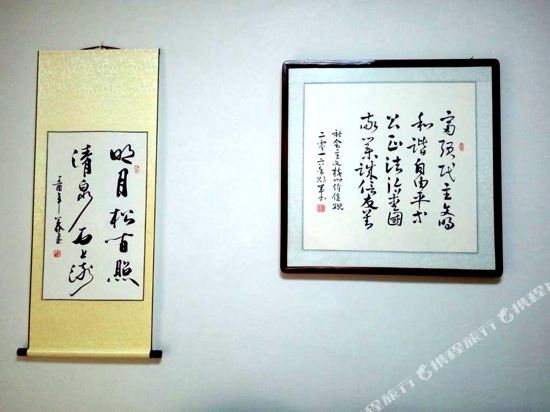 明月松间照
清泉石上流
富强民主文明
和谐自由平等
公正法治爱國
敬業诚信友善
社会主义核心价值观
二零一六年
携程旅行
携程旅行